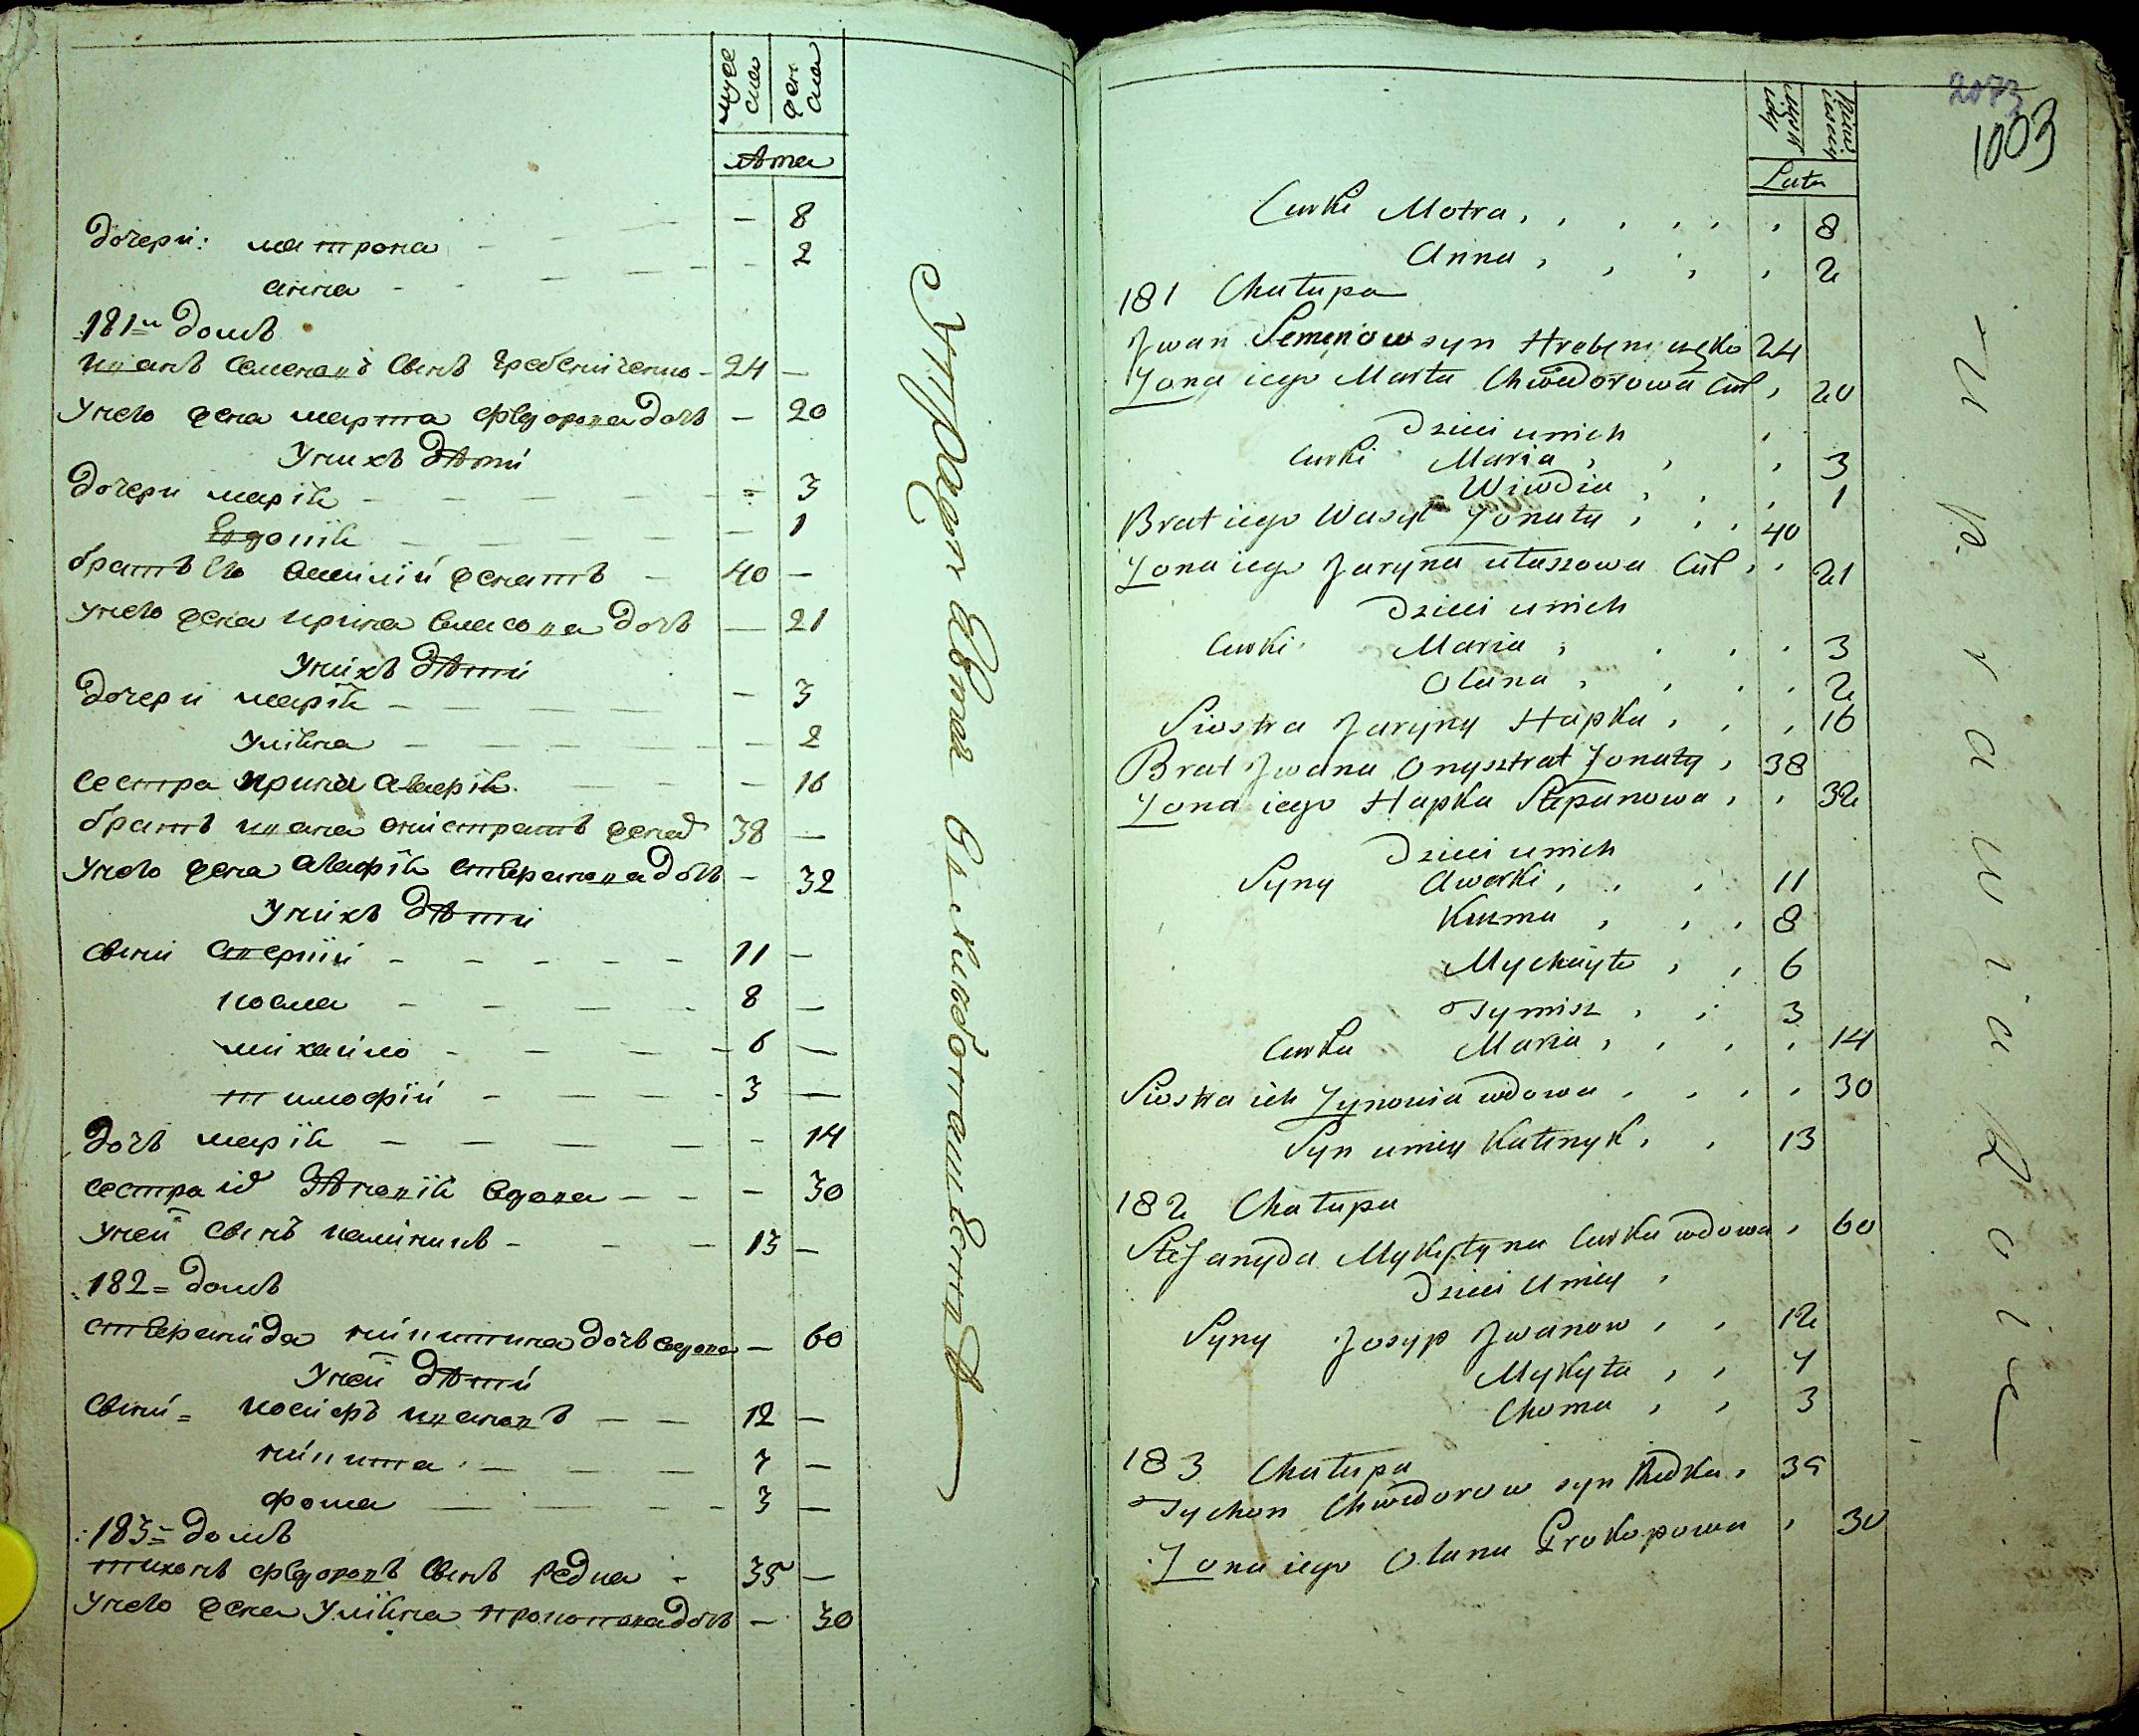 муж ска
жен ска
лѣта
дочери: матрона - 8
анна - 2
181й домъ
иванъ семеновъ сынъ гребенниченко - 24 -
унего жена марта федорова дочь - 20
унихъ дѣти
дочери марія - 3
Евдокія - 1
братъ его василій женатъ - 40 -
унего жена ирина власова дочь - 21
унихъ дѣти
дочери марія - 3
уліяна - 2
сестра ирина агафія - 16
братъ ивана онистратъ женат 38 -
унего жена агафія степанова дочь - 32
унихъ дѣти
сыни аверкій - 11 -
козма - 8 -
михайло - 6 -
тимофій - 3 -
дочь марія - 14
сестра их зѣновія вдова - 30
уней сынъ калиникъ - 13 -
182= домъ
степанида никитина дочь вдова - 60
уней дѣти
сыни= иосифъ ивановъ - 12 -
никита - 7 -
фома - 3 -
183= домъ
тихонъ федоровъ сынъ редка - 35 -
унего жена уліяна прокопова дочь - 30
2073
1003
Lata
Curki Motra, 8
Anna, 2
181 Chałupa
Jwan Semenow syn Hrebeniczęko 24
Żona iego Marta Chwedorowa Cur, 20
Dzieci unich
Curki Maria, 3
Wiwdia, 1
Brat iego Wasyl Żonaty, 40
Żona iego Jaryna Ułaszowa Cur, 21
Dzieci unich
Curki Maria, 3
Olana, 2
Siostra Jaryny Hapka, 16
Brat Jwana Onysztrat Żonaty, 38
Żona iego Hapka Stepanowa, 32
Dzieci unich
Syny Awerki, 11
Kuzma, 8
Mychayło, 6
Tymisz, 3
Curka Maria, 14
Siostra ich Zynowia wdowa, 30
Syn uniey Kalenyk, 13
182 Chałupa
Stefanyda Mykytyna Curka wdowa, 60
Dzieci Uniey,
Syny Josyp Jwanow, 12
Mykyta, 7
Choma, 3
183 Chałupa
Tychon Chwedorow syn Redka, 35
Żona iego Olana Prokopowa, 30